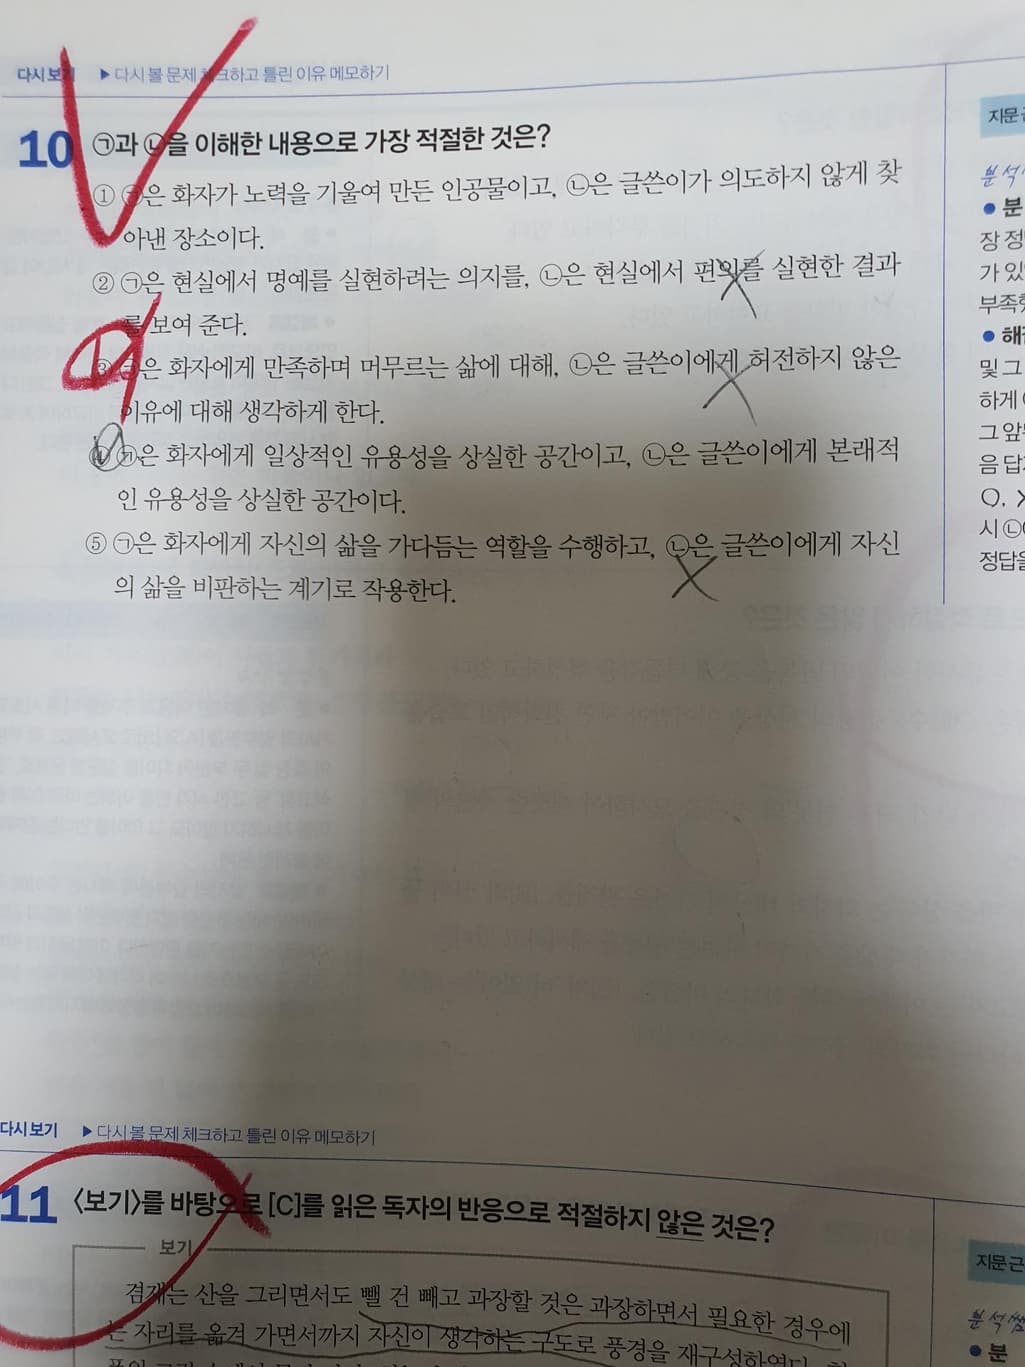 다시보기 ▶다시 볼 문제 체크하고 틀린 이유 메모하기
지문
10 ㉠과 ㉡을 이해한 내용으로 가장 적절한 것은?
① ㉠은 화자가 노력을 기울여 만든 인공물이고, ㉡은 글쓴이가 의도하지 않게 찾
아낸 장소이다.
② ㉠은 현실에서 명예를 실현하려는 의지를, ㉡은 현실에서 편의를 실현한 결과
를 보여 준다.
③ ㉠은 화자에게 만족하며 머무르는 삶에 대해, ㉡은 글쓴이에게 허전하지 않은
이유에 대해 생각하게 한다.
④ ㉠은 화자에게 일상적인 유용성을 상실한 공간이고, ㉡은 글쓴이에게 본래적
인 유용성을 상실한 공간이다.
⑤ ㉠은 화자에게 자신의 삶을 가다듬는 역할을 수행하고, ㉡은 글쓴이에게 자신
의 삶을 비판하는 계기로 작용한다.
분석
• 분
장 정
가 있
부족
• 해
및 그
하게
그 앞
음 답
O, X
시 ㉡
정답을
다시보기 ▶다시 볼 문제 체크하고 틀린 이유 메모하기
11 <보기>를 바탕으로 [C]를 읽은 독자의 반응으로 적절하지 않은 것은?
보기
겸재는 산을 그리면서도 뺄 건 빼고 과장할 것은 과장하면서 필요한 경우에
는 자리를 옮겨 가면서까지 자신이 생각하는 구도로 풍경을 재구성하였다.
지문 근
분석쌤
• 분